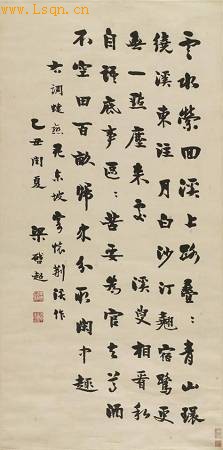 www.Lsqn.cn
雲水縈回溪上路疊〻青山環
繞溪東注月白沙汀翹宿鷺更
無一點塵來處 溪叟相看私
自語底事區〻苦要為官去尊酒
不空田百畝歸來分取閒中趣
右調蝶戀花東坡懷荊溪作
乙丑閏夏
梁啟超